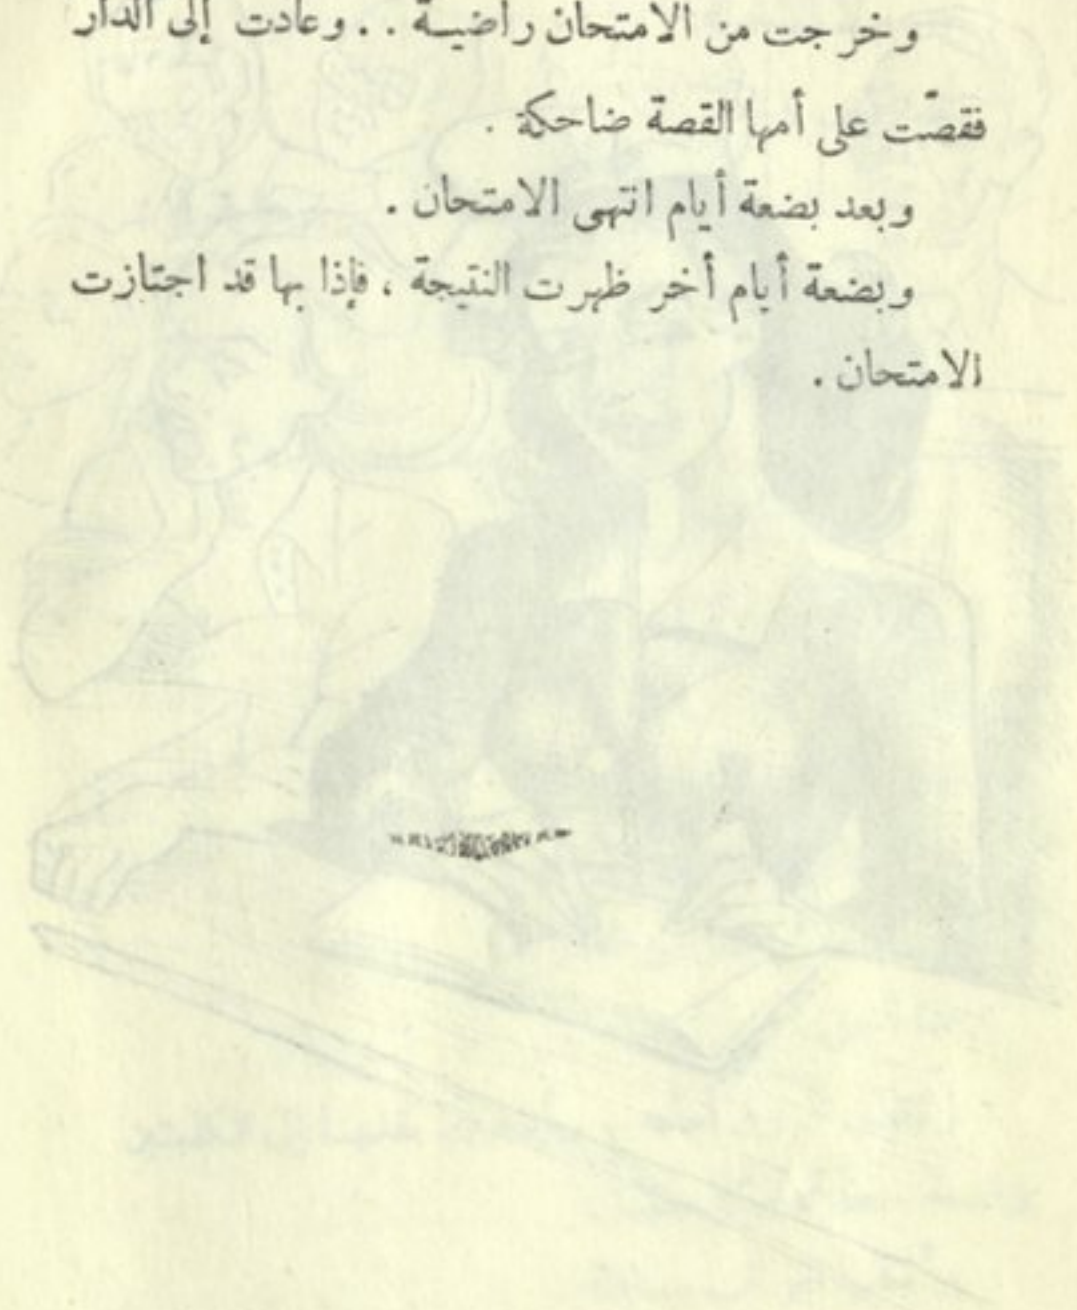 وخرجت من الامتحان راضية . . وعادت إلى الدار
فقصّت على أمها القصة ضاحكة .
وبعد بضعة أيام انتهى الامتحان .
وبضعة أيام أخر ظهرت النتيجة ، فإذا بها قد اجتازت
الامتحان .